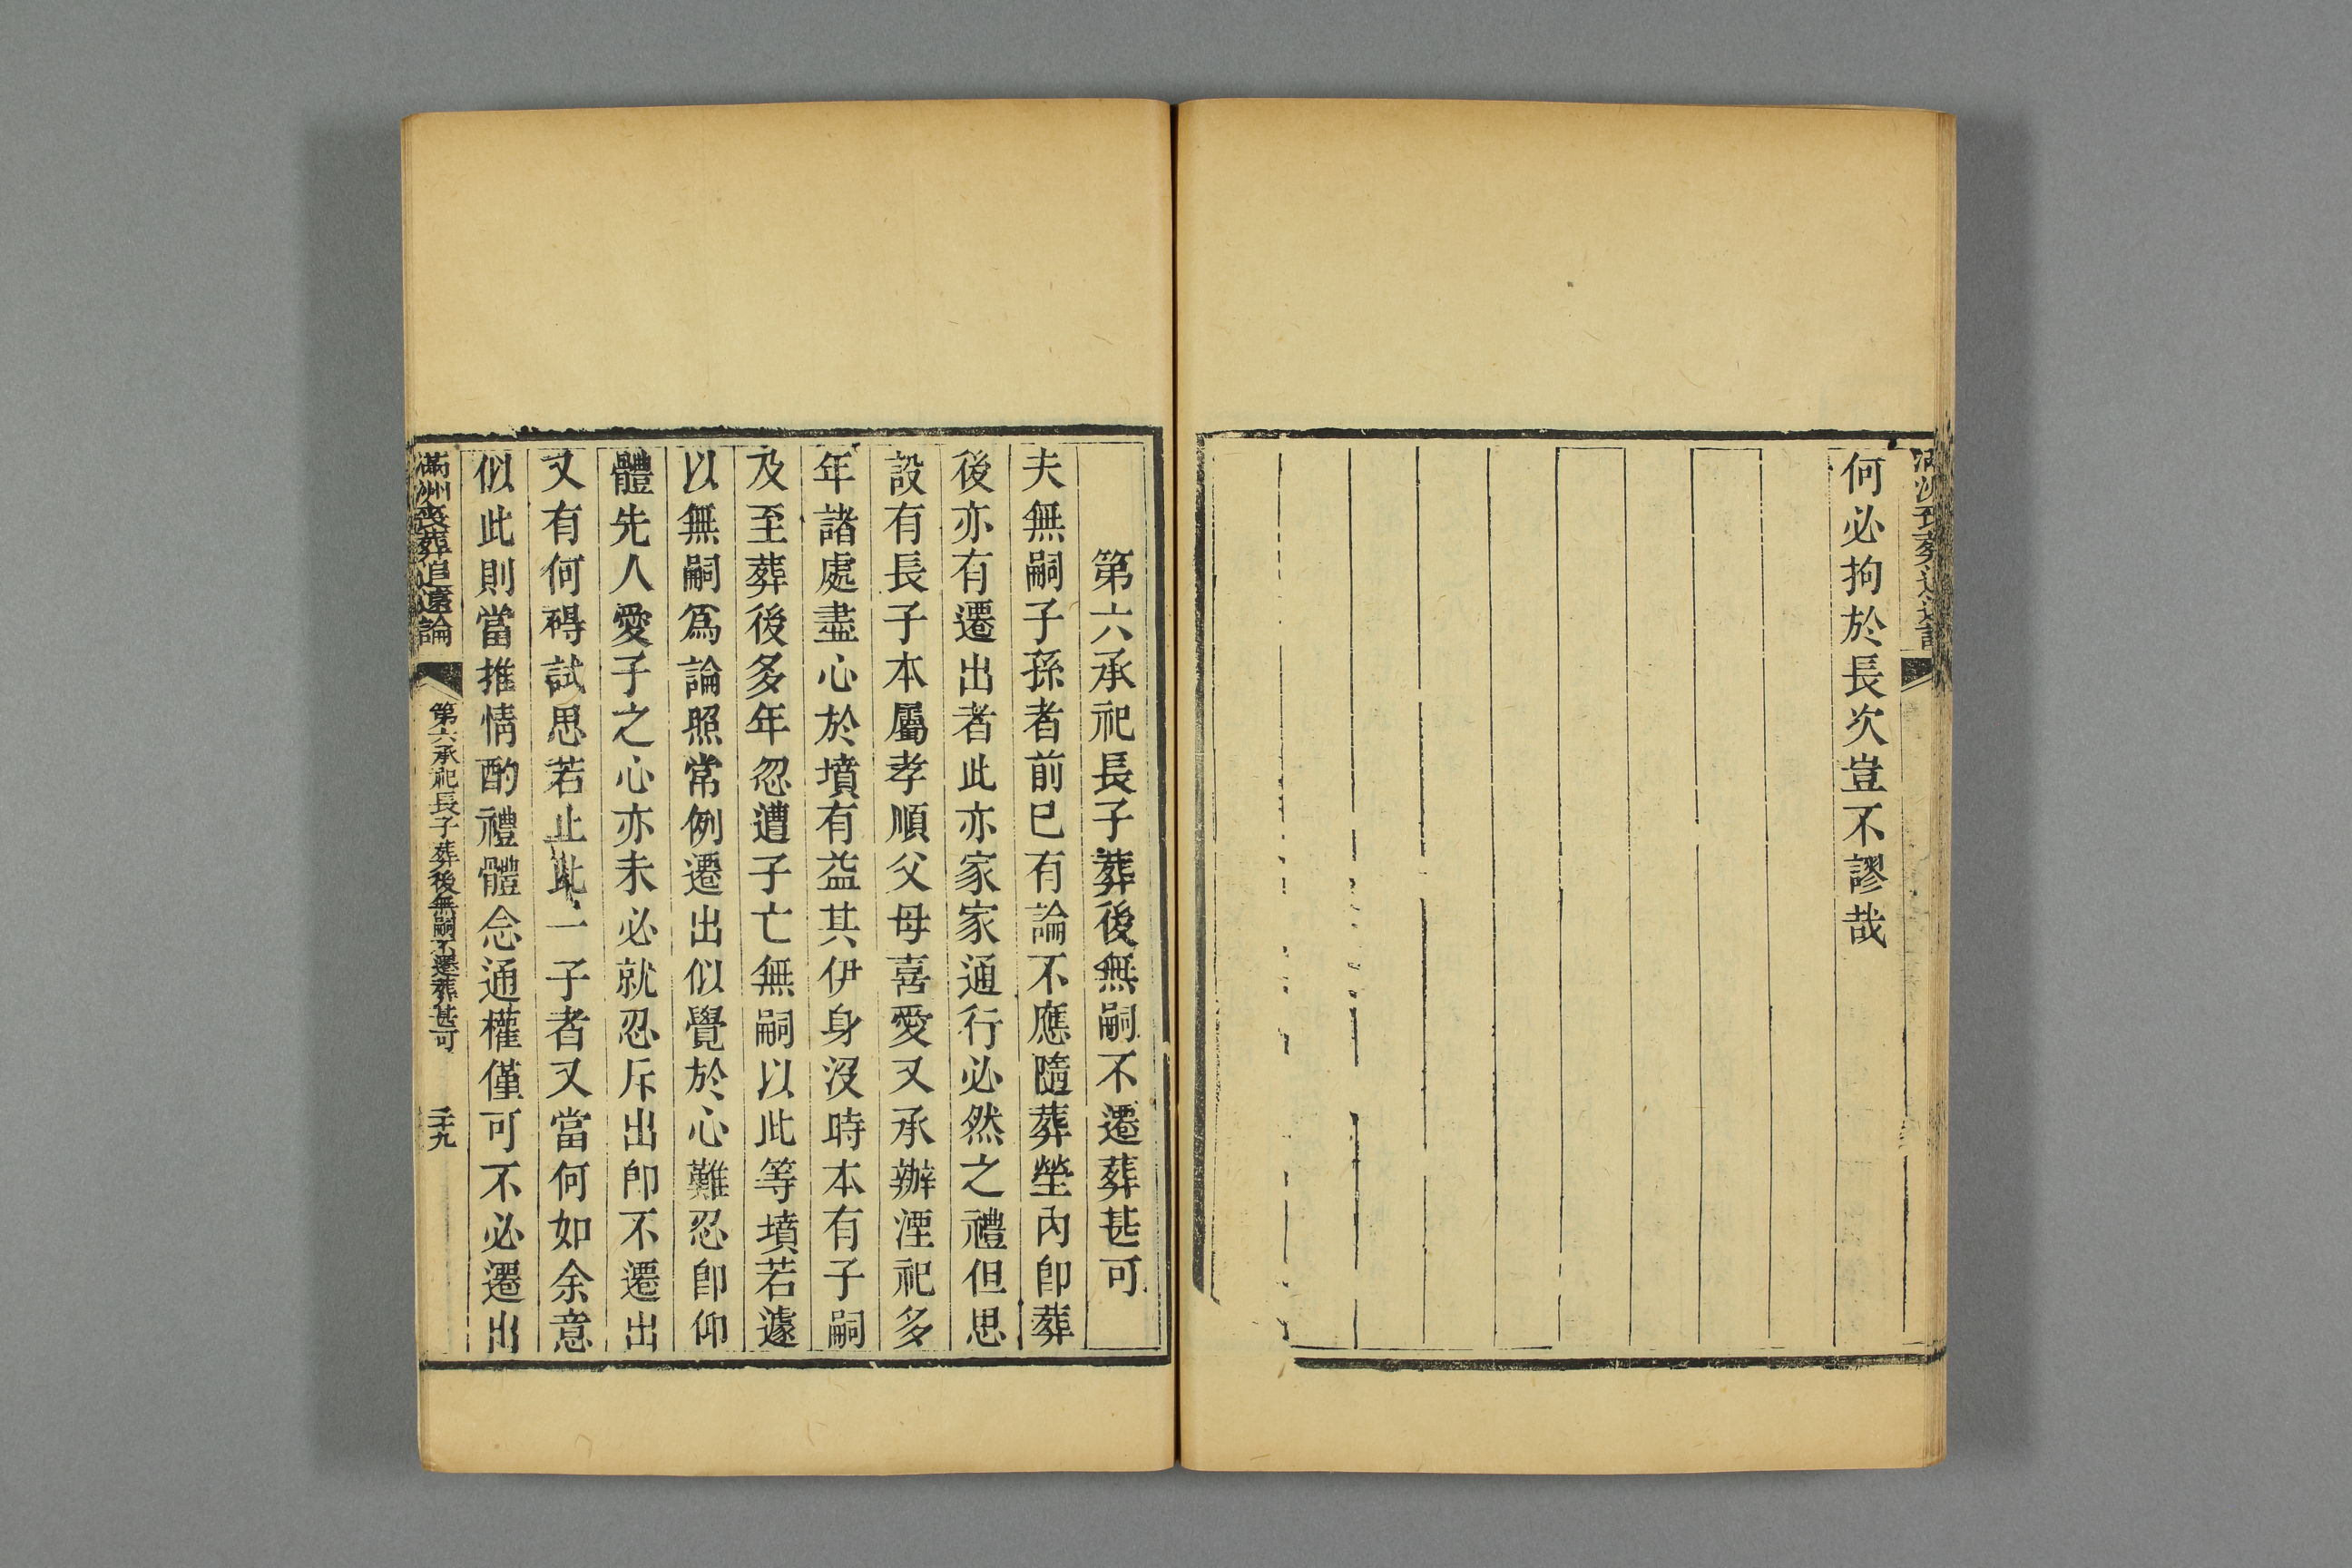 何必拘於長次豈不謬哉
第六承祀長子葬後無嗣不遷葬甚可
夫無嗣子孫者前巳有論不應隨葬塋內卽葬
後亦有遷出者此亦家家通行必然之禮但思
設有長子本屬孝順父母喜愛又承辦湮祀多
年諸處盡心於墳有益其伊身沒時本有子嗣
及至葬後多年忽遭子亡無嗣以此等墳若遽
以無嗣爲論照常例遷出似覺於心難忍卽仰
體先人愛子之心亦未必就忍斥出卽不遷出
又有何碍試思若止此一子者又當何如余意
似此則當推情酌禮體念通權僅可不必遷出
滿洲喪葬追遠論
第六承祀長子葬後無嗣不遷葬甚可
二十九